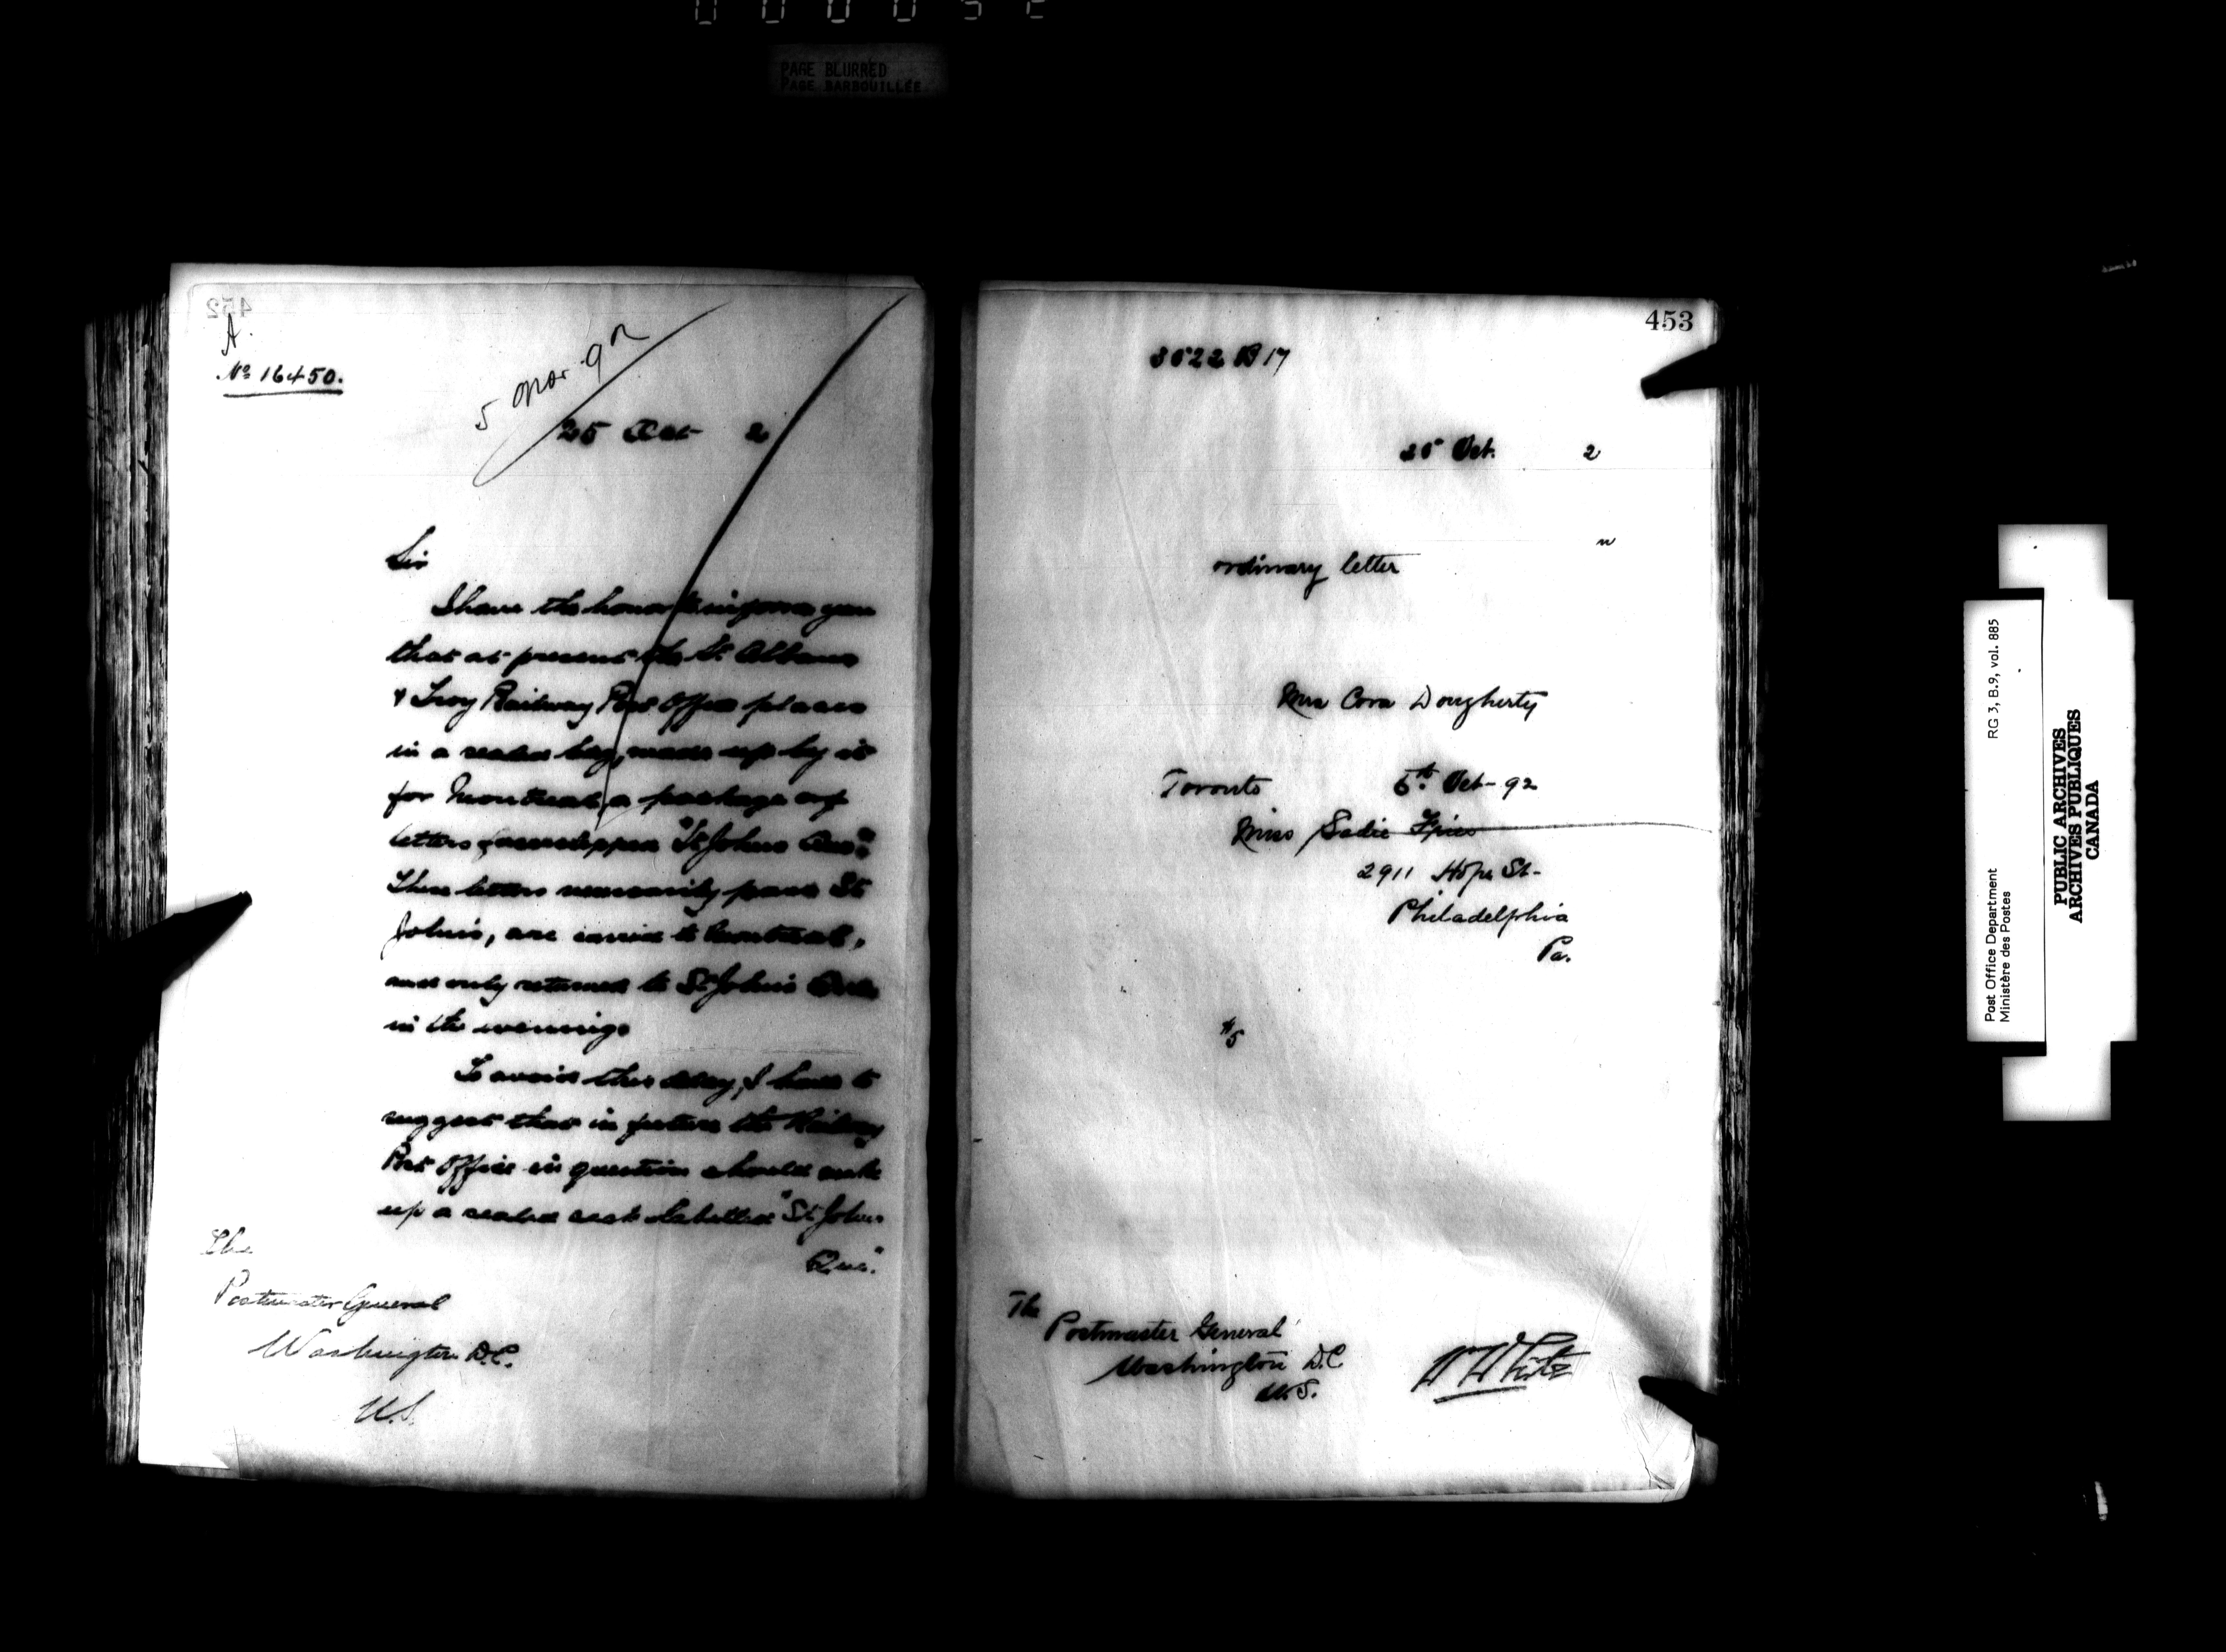 PAGE BLURRED
PAGE BARBOUILLÉE
452
A.
No 16450.
5 Nov. 92
25 Oct 2
Sir
I have the honor to inform you
that at present the St Albans
& Troy Railway Post Office places
in a sealed bag, made up by it
for Montreal, a package of
letters faceslipped "St Johns Que".
These letters necessarily pass St
John's, are carried to Montreal,
and only returned to St John's Que
in the evening.
To avoid this delay, I have to
suggest that in future the Railway
Post Office in question should make
up a sealed sack labelled "St Johns
Que."
The
Postmaster General
Washington D.C.
U.S.
453
3522 B 17
25 Oct. 2
ordinary letter
Mrs Cora Dougherty
Toronto 5th Oct - 92
Miss Sadie
2911 Hope St-
Philadelphia
Pa.
The
Postmaster General
Washington D.C.
U.S.
Post Office Department RG 3, B.9, vol. 885
Ministère des Postes
PUBLIC ARCHIVES
ARCHIVES PUBLIQUES
CANADA